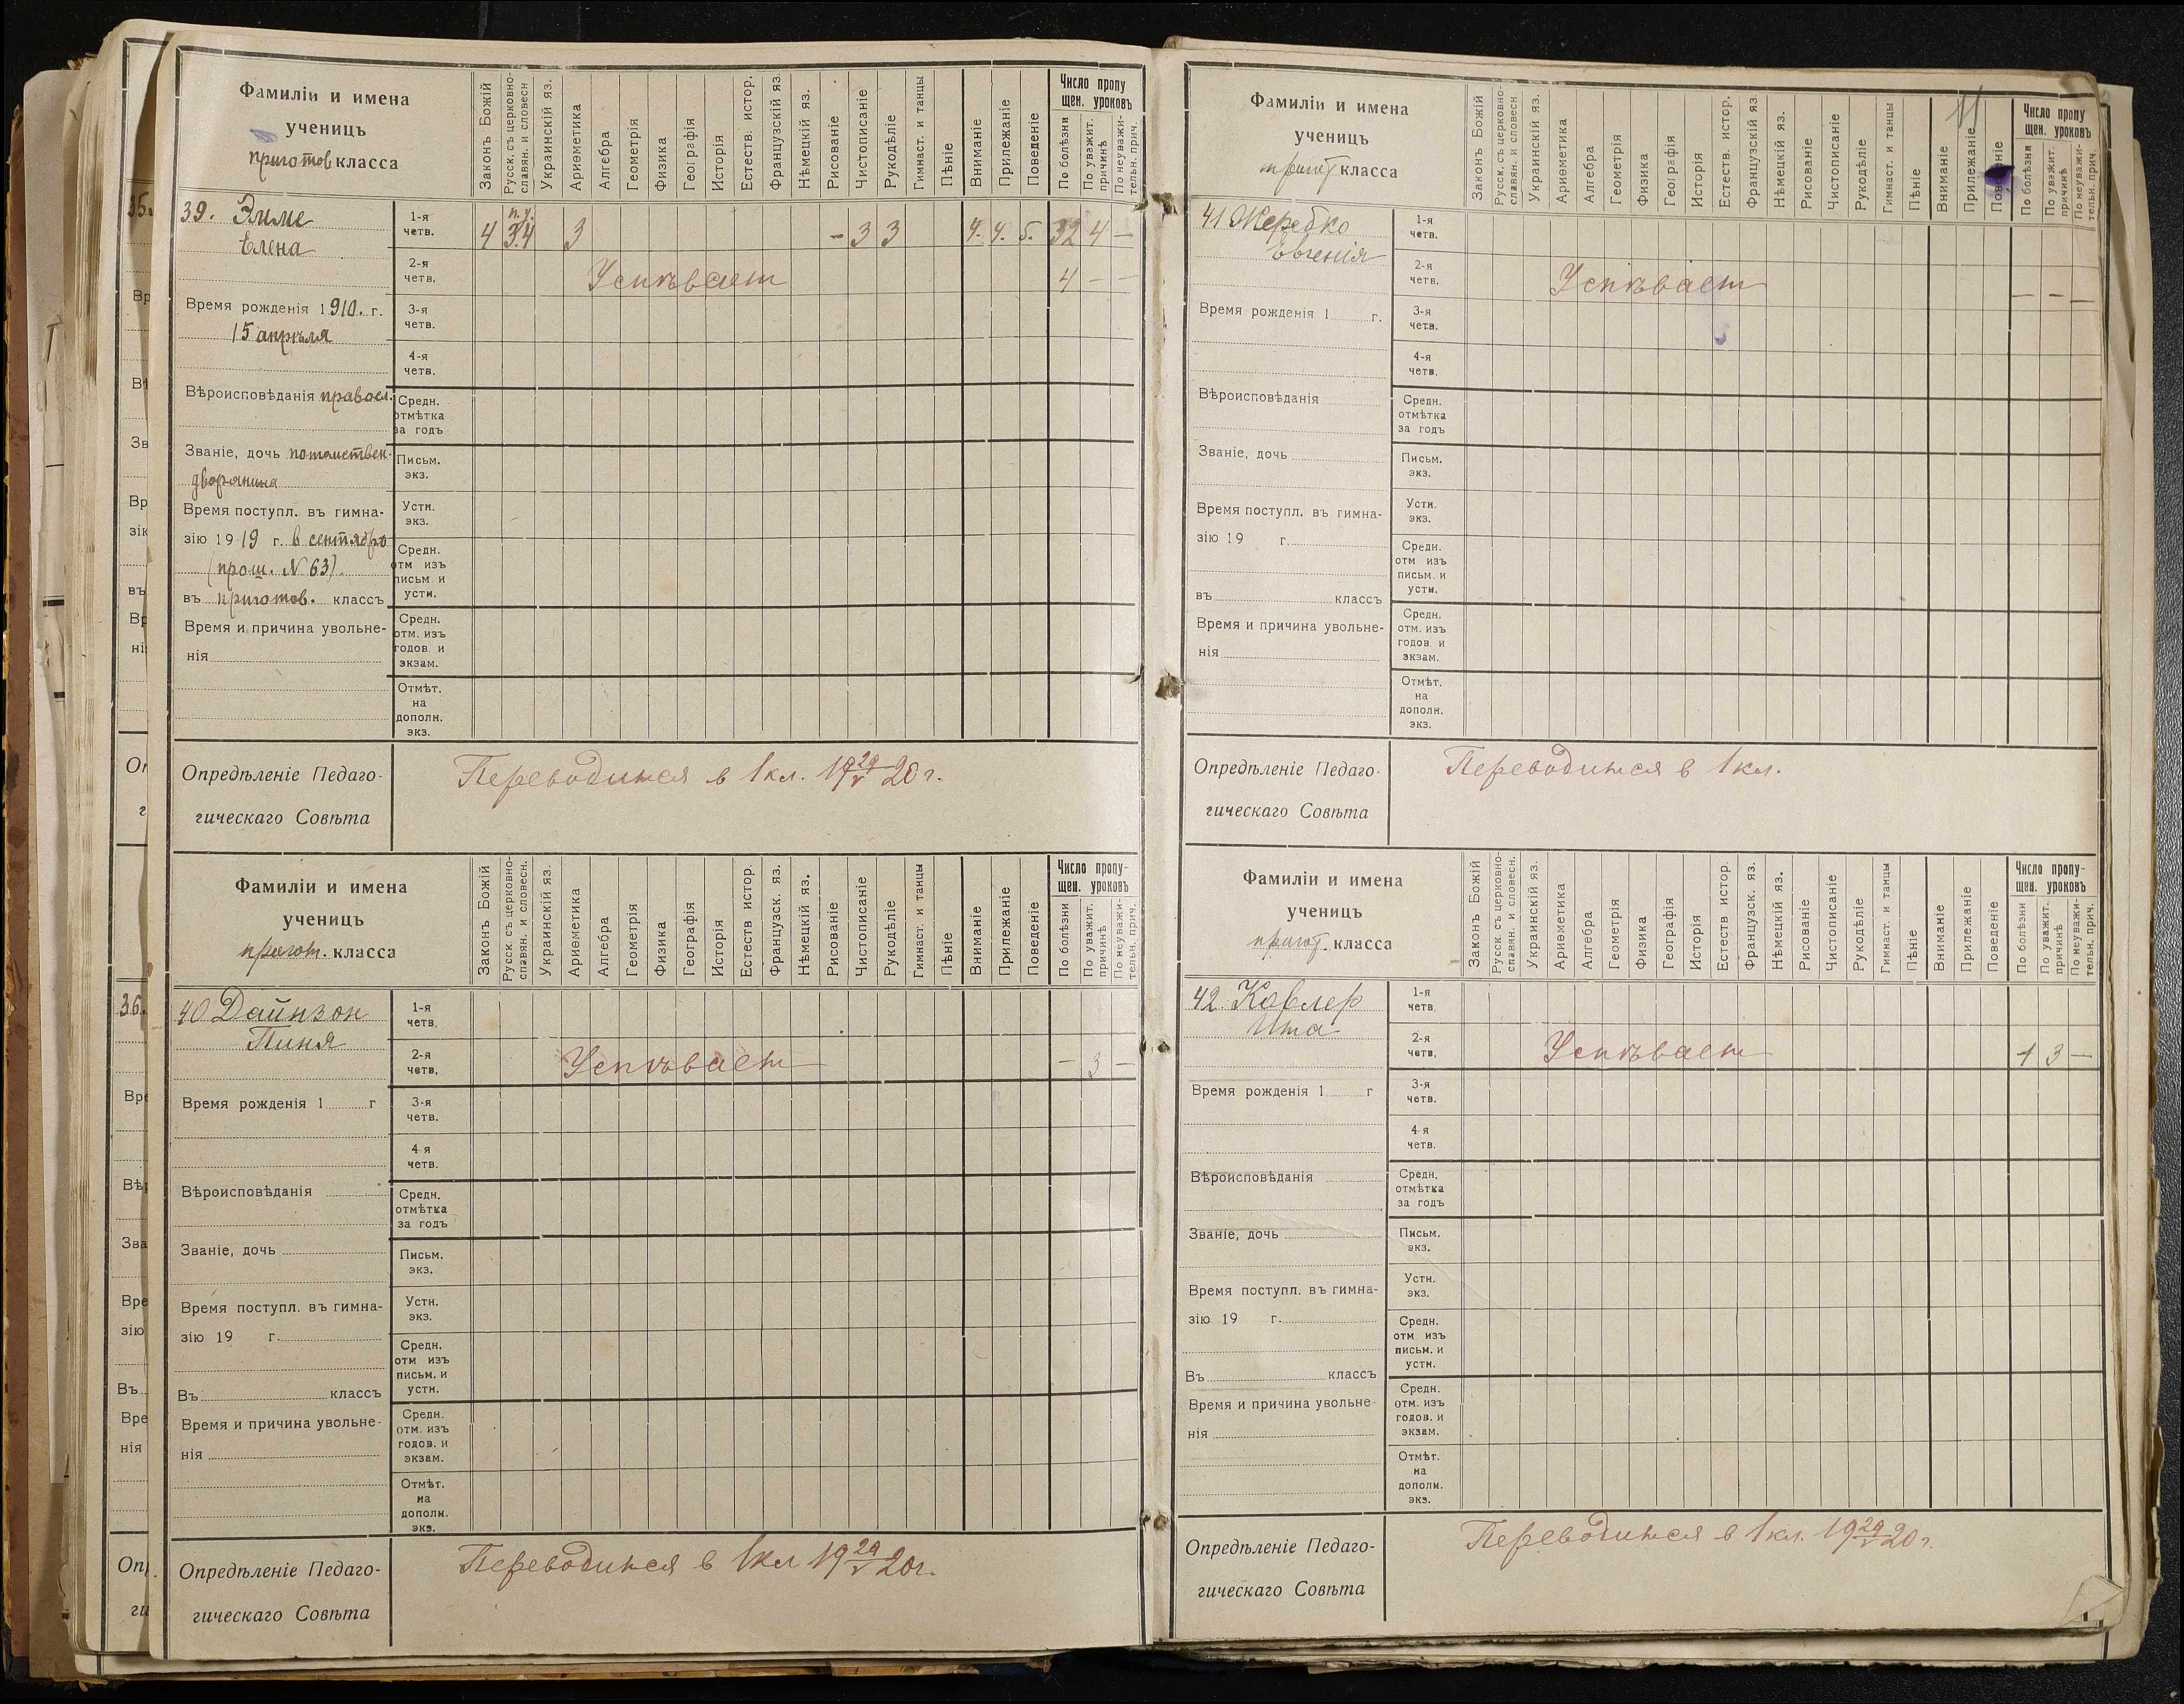 Фамиліи и имена
ученицъ
приготов класса
Законъ Божій
Русск. съ церковно-
славян. и словесн
Украинскій яз.
Ариѳметика
Алгебра
Геометрія
Физика
Географія
Исторія
Естеств. истор.
Французскій яз.
Нѣмецкій яз.
Рисованіе
Чистописаніе
Рукодѣліе
Гимнаст. и танцы
Пѣніе
Вниманіе
Прилежаніе
Поведеніе
Число пропу
щен. уроковъ
По болѣзни
По уважит.
причинѣ
По неуважи-
тельн. прич.
39. Эиме
Елена
Время рожденія 1910. г.
15 апрѣля
Вѣроисповѣданія правосл.
Званіе, дочь потомствен.
дворянина
Время поступл. въ гимна-
зію 1919 г. в сентябрѣ
(прош. N 63).
въ приготов. классъ
Время и причина увольне-
нія
1-я
четв.
4 3 4 3 - 3 3 4. 4. 5. 32 4 —
2-я
четв.
Успѣвает 4 — —
3-я
четв.
4-я
четв.
Средн.
отмѣтка
за годъ
Письм.
экз.
Устн.
экз.
Средн.
отм изъ
письм. и
устн.
Средн.
отм. изъ
годов. и
экзам.
Отмѣт.
на
дополн.
экз.
Опредѣленіе Педаго-
гическаго Совѣта
Переводится в 1 кл. 19 29/V 20 г.
Фамиліи и имена
ученицъ
пригот. класса
Законъ Божій
Русск. съ церковно-
славян. и словесн.
Украинскій яз.
Ариѳметика
Алгебра
Геометрія
Физика
Географія
Исторія
Естеств истор.
Французск. яз.
Нѣмецкій яз.
Рисованіе
Чистописаніе
Рукодѣліе
Гимнаст. и танцы
Пѣніе
Вниманіе
Прилежаніе
Поведеніе
Число пропу-
щен. уроковъ
По болѣзни
По уважит.
причинѣ
По неуважи-
тельн. прич.
40 Дайнзон
Пиня
Время рожденія 1 г
Вѣроисповѣданія
Званіе, дочь
Время поступл. въ гимна-
зію 19 г.
Въ классъ
Время и причина увольне-
нія
1-я
четв.
2-я
четв.
Успѣвает — 3 —
3-я
четв.
4 я
четв.
Средн.
отмѣтка
за годъ
Письм.
экз.
Устн.
экз.
Средн.
отм изъ
письм. и
устн.
Средн.
отм. изъ
годов. и
экзам.
Отмѣт.
на
дополн.
экз.
Опредѣленіе Педаго-
гическаго Совѣта
Переводится в 1 кл 19 29/V 20 г.
Фамиліи и имена
ученицъ
пригот класса
Законъ Божій
Русск. съ церковно-
славян. и словесн
Украинскій яз.
Ариѳметика
Алгебра
Геометрія
Физика
Географія
Исторія
Естеств. истор.
Французскій яз
Нѣмецкій яз.
Рисованіе
Чистописаніе
Рукодѣліе
Гимнаст. и танцы
Пѣніе
Вниманіе
Прилежаніе
Поведеніе
Число пропу
щен. уроковъ
По болѣзни
По уважит.
причинѣ
По неуважи-
тельн. прич.
41 Жеребко
Евгенія
Время рожденія 1 г.
Вѣроисповѣданія
Званіе, дочь
Время поступл. въ гимна-
зію 19 г.
въ классъ
Время и причина увольне-
нія
1-я
четв.
2-я
четв.
Успѣвает — — —
3-я
четв.
4-я
четв.
Средн.
отмѣтка
за годъ
Письм.
экз.
Устн.
экз.
Средн.
отм изъ
письм. и
устн.
Средн.
отм. изъ
годов. и
экзам.
Отмѣт.
на
дополн.
экз.
Опредѣленіе Педаго-
гическаго Совѣта
Переводится в 1 кл.
Фамиліи и имена
ученицъ
пригот. класса
Законъ Божій
Русск. съ церковно-
славян. и словесн.
Украинскій яз.
Ариѳметика
Алгебра
Геометрія
Физика
Географія
Исторія
Естеств истор.
Французск. яз.
Нѣмецкій яз.
Рисованіе
Чистописаніе
Рукодѣліе
Гимнаст. и танцы
Пѣніе
Вниманіе
Прилежаніе
Поведеніе
Число пропу-
щен. уроковъ
По болѣзни
По уважит.
причинѣ
По неуважи-
тельн. прич.
42. Ковлер
Ита
Время рожденія 1 г
Вѣроисповѣданія
Званіе, дочь
Время поступл. въ гимна-
зію 19 г.
Въ классъ
Время и причина увольне-
нія
1-я
четв.
2-я
четв.
Успѣвает 1 3 —
3-я
четв.
4 я
четв.
Средн.
отмѣтка
за годъ
Письм.
экз.
Устн.
экз.
Средн.
отм изъ
письм. и
устн.
Средн.
отм. изъ
годов. и
экзам.
Отмѣт.
на
дополн.
экз.
Опредѣленіе Педаго-
гическаго Совѣта
Переводится в 1 кл. 19 29/V 20 г.